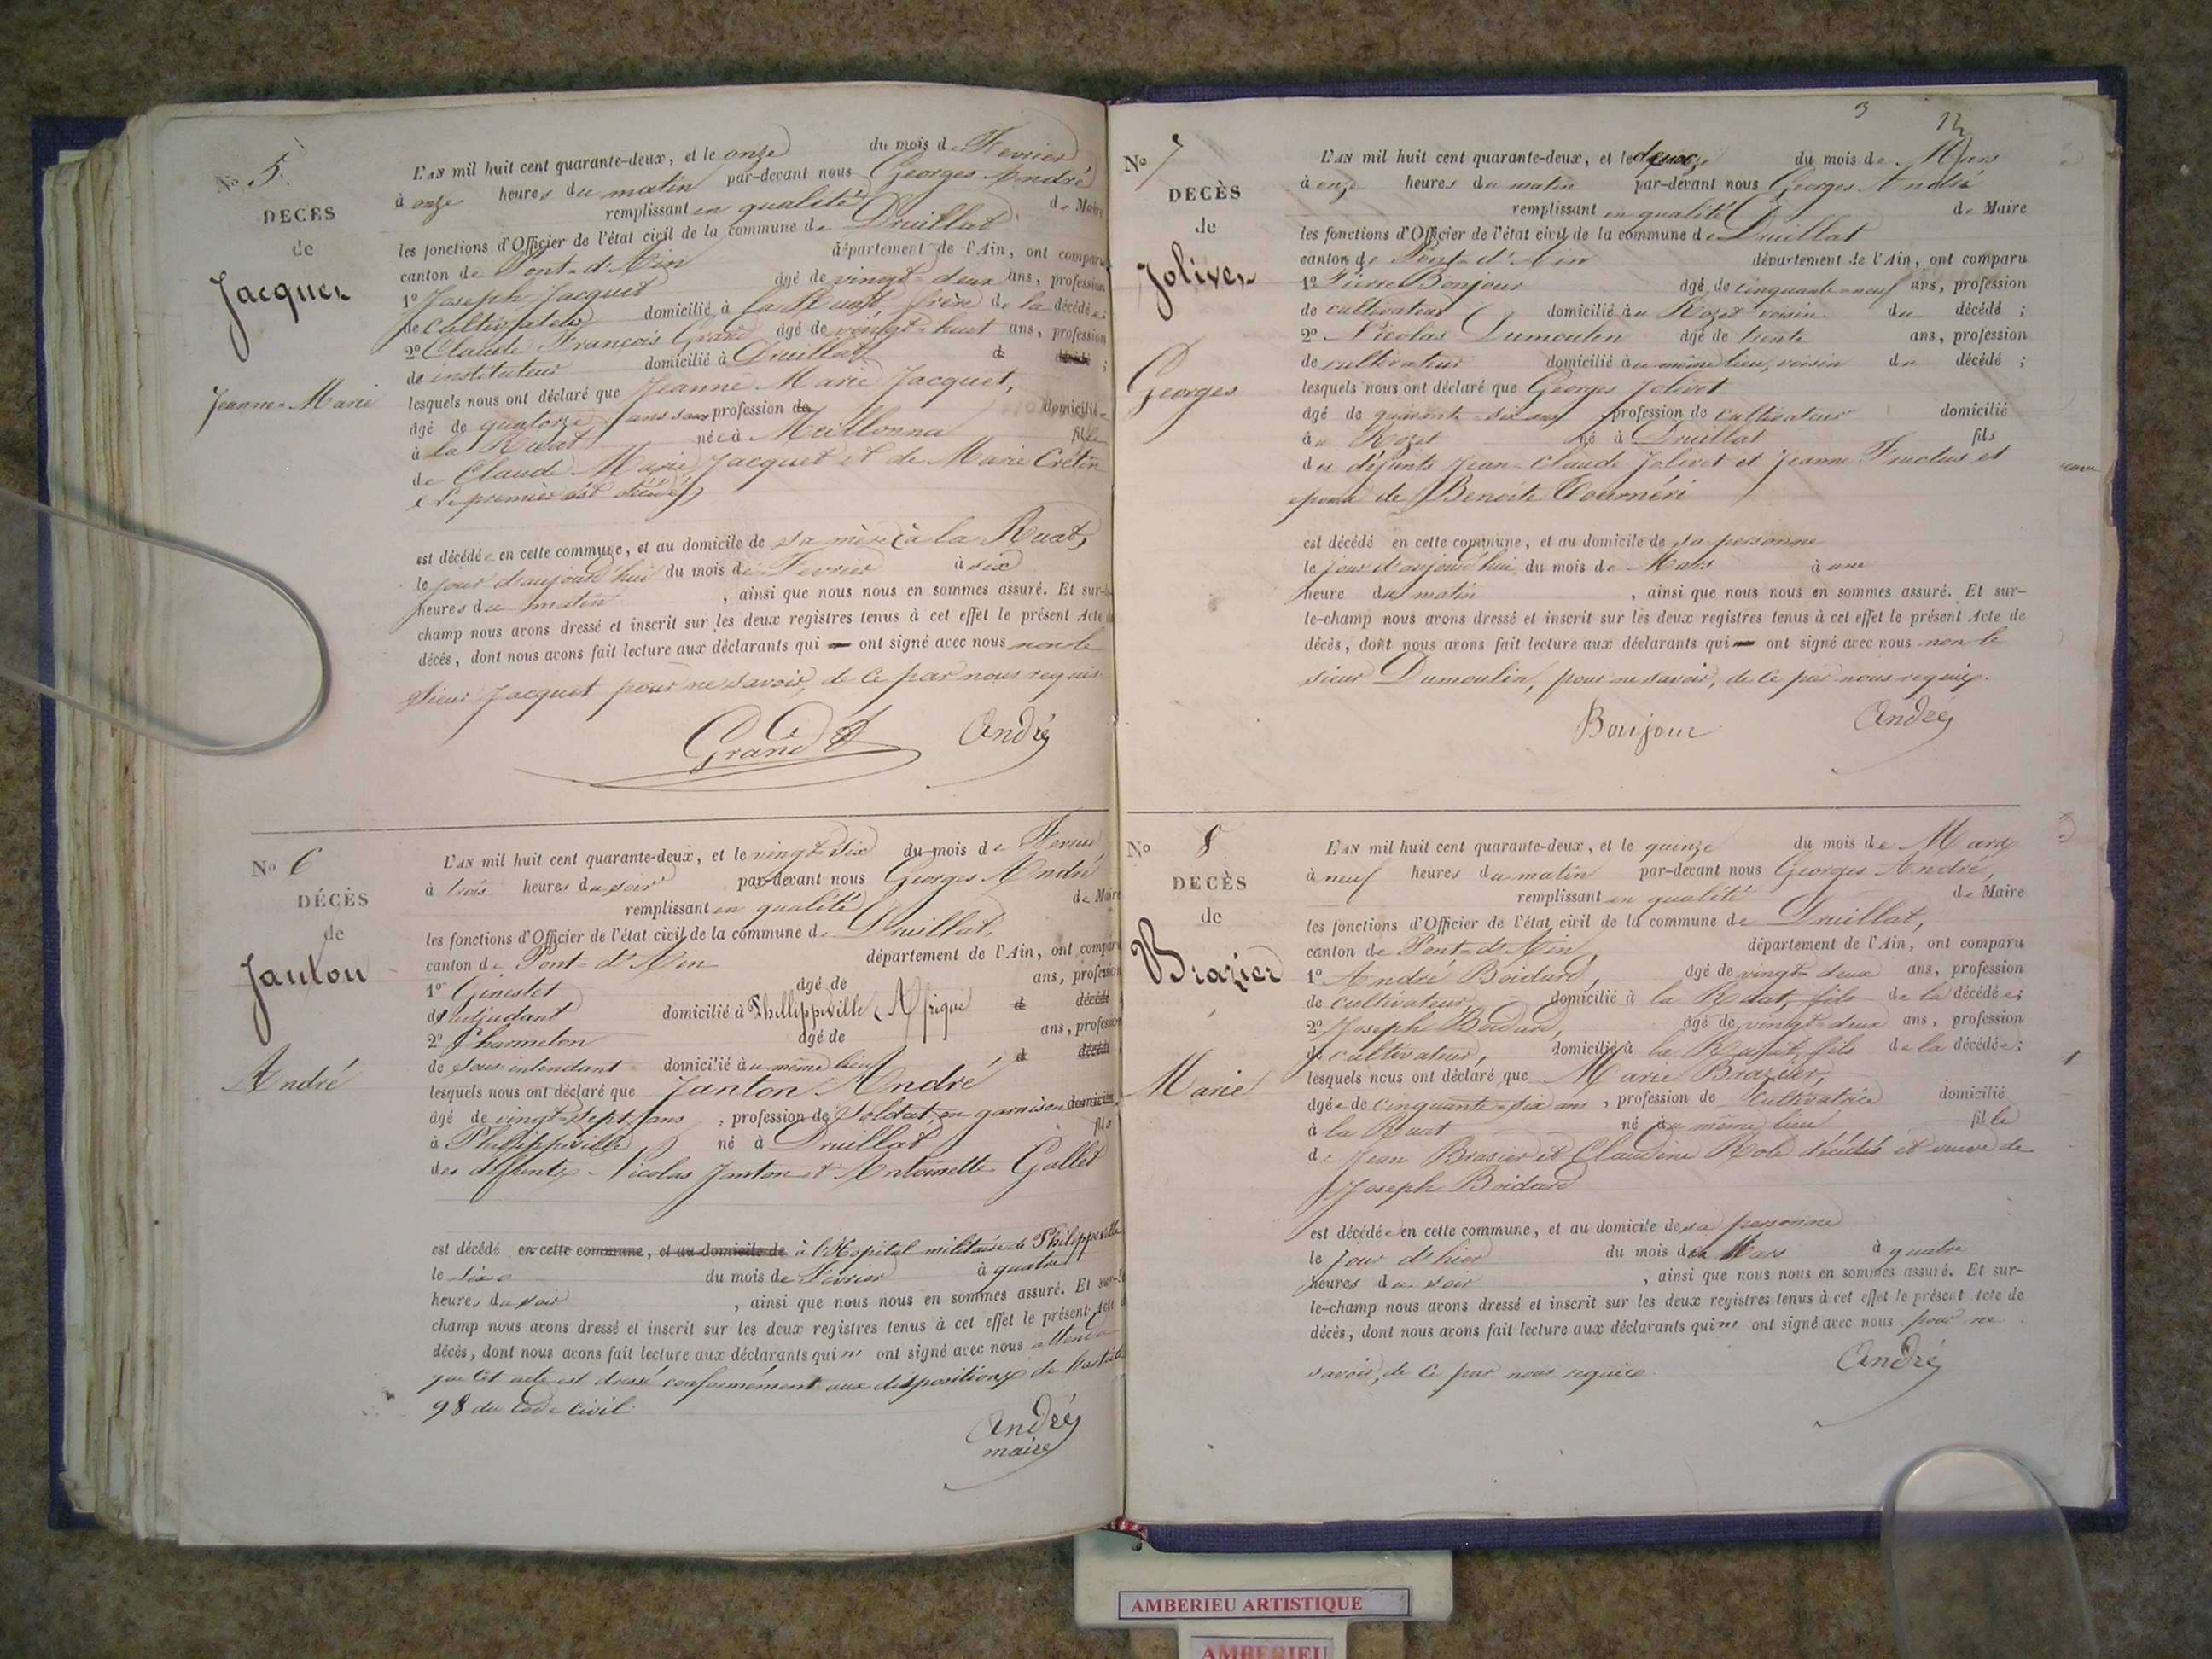 N° 5.
DECÈS
de
Jacquet
Jeanne-Marie
L'AN mil huit cent quarante-deux, et le onze du mois de Fevrier
à onze heures du matin par-devant nous Georges André
remplissant en qualité de Maire
les fonctions d'Officier de l'état civil de la commune de Druillat
canton de Pont-d'Ain département de l'Ain, ont comparu
1° Joseph Jacquet âgé de vingt-deux ans, profession
de cultivateur domicilié à la Ruat, frère de la décédée;
2° Claude François Grand âgé de vingt-huit ans, profession
de instituteur domicilié à Druillat d décédé ;
lesquels nous ont déclaré que Jeanne Marie Jacquet,
âgé de quatorze ans sans profession de domiciliée
à la Ruat née à Meillonna fille
de Claude Marie Jacquet et de Marie Crétin
(le premier est décédé)
est décédée en cette commune, et au domicile de sa mère (à la Ruat)
le jour d'aujourd'hui du mois de Fevrier à six
heures du matin , ainsi que nous nous en sommes assuré. Et sur-le-
champ nous avons dressé et inscrit sur les deux registres tenus à cet effet le présent Acte de
décès, dont nous avons fait lecture aux déclarants qui ont signé avec nous non le
sieur Jacquet pour ne savoir, de ce par nous requis
Grand André
N° 6
DÉCÈS
de
Janton
André
L'AN mil huit cent quarante-deux, et le vingt-six du mois de Fevrier
à trois heures du soir par-devant nous Georges André
remplissant en qualité de Maire
les fonctions d'Officier de l'état civil de la commune de Druillat,
canton de Pont-d'Ain département de l'Ain, ont comparu
1° Ginestet âgé de ans, profession
d'adjudant domicilié à Philippeville (Afrique d décédé
2° Charmeton âgé de ans, profession
de sous intendant domicilié au même lieu d décédé
lesquels nous ont déclaré que Janton André
âgé de vingt-sept ans , profession de Soldat, en garnison domicilié
à Philippeville né à Druillat fils
des défunts Nicolas Janton et Antoinette Gallet
est décédé en cette commune, et au domicile de à l'Hopital militaire de Philippeville
le six du mois de Février à quatre
heures du soir , ainsi que nous nous en sommes assuré. Et sur-le-
champ nous avons dressé et inscrit sur les deux registres tenus à cet effet le présent Acte de
décès, dont nous avons fait lecture aux déclarants qui n' ont signé avec nous attendu
que cet acte est dressé conformément aux dispositions de l'article
98 du Code civil.
André
maire
3 12
N° 7
DECÈS
de
Jolivet
Georges
L'AN mil huit cent quarante-deux, et le du mois de Mars
à onze heures du matin par-devant nous Georges André
remplissant en qualité de Maire
les fonctions d'Officier de l'état civil de la commune de Druillat
canton de Pont-d'Ain département de l'Ain, ont comparu
1° Pierre Bonjour âgé de cinquante-neuf ans, profession
de cultivateur domicilié au Rozet voisin du décédé ;
2° Nicolas Dumoulin âgé de trente ans, profession
de cultivateur domicilié au même lieu, voisin du décédé ;
lesquels nous ont déclaré que Georges Jolivet
âgé de quarante-six ans profession de cultivateur domicilié
au Rozet né à Druillat fils
des défunts Jean-Claude Jolivet et Jeanne Fructus et
epoux de Benoite Tournéri
est décédé en cette commune, et au domicile de sa personne
le jour d'aujourd'hui du mois de Mars à une
heure du matin , ainsi que nous nous en sommes assuré. Et sur-
le-champ nous avons dressé et inscrit sur les deux registres tenus à cet effet le présent Acte de
décès, dont nous avons fait lecture aux déclarants qui ont signé avec nous non le
sieur Dumoulin, pour ne savoir, de ce par nous requis.
Bonjour André
N° 8
DECÈS
de
Brazier
Marie
L'AN mil huit cent quarante-deux, et le quinze du mois de Mars
à neuf heures du matin par-devant nous Georges André,
remplissant en qualité de Maire
les fonctions d'Officier de l'état civil de la commune de Druillat,
canton de Pont-d'Ain, département de l'Ain, ont comparu
1° André Boidard, âgé de vingt-deux ans, profession
de cultivateur, domicilié à la Ruat, fils de la décédée;
2° Joseph Boidard, âgé de vingt-deux ans, profession
de cultivateur, domicilié à la Ruat, fils de la décédée;
lesquels nous ont déclaré que Marie Brazier,
âgée de cinquante-six ans , profession de cultivatrice domicilié
à la Ruat né au même lieu fille
de Jean Brasier et Claudine Role décédés et veuve de
Joseph Boidard
est décédée en cette commune, et au domicile de sa personne
le jour d'hier du mois de Mars à quatre
heures du soir , ainsi que nous nous en sommes assuré. Et sur-
le-champ nous avons dressé et inscrit sur les deux registres tenus à cet effet le présent Acte de
décès, dont nous avons fait lecture aux déclarants qui n' ont signé avec nous pour ne
savoir, de ce par nous requis
André
AMBERIEU ARTISTIQUE
AMBERIEU